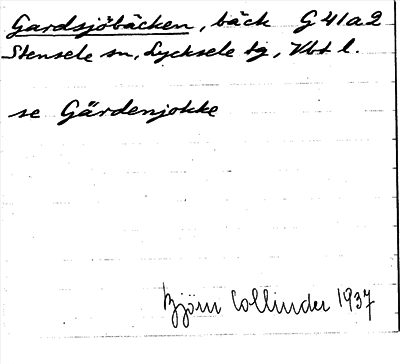 Gardsjöbäcken, bäck G 41 a 2
Stensele sn, Lycksele tg, Vbt l.
se Gärdenjokke
Björn Collinder 1937